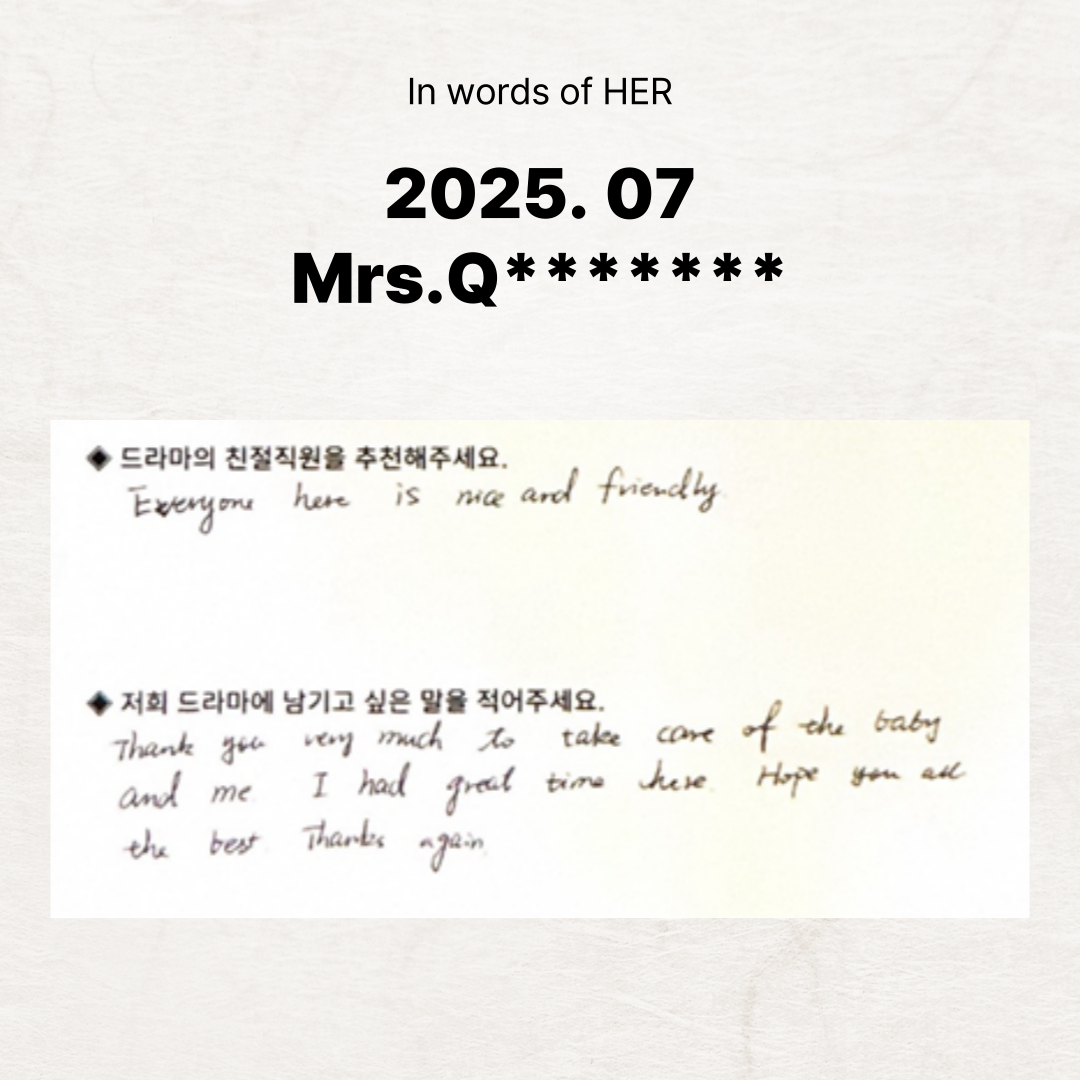 In words of HER
2025. 07
Mrs.Q*******
◆ 드라마의 친절직원을 추천해주세요.
Everyone here is nice and friendly
◆ 저희 드라마에 남기고 싶은 말을 적어주세요.
Thank you very much to take care of the baby
and me. I had great time here. Hope you all
the best. Thanks again.